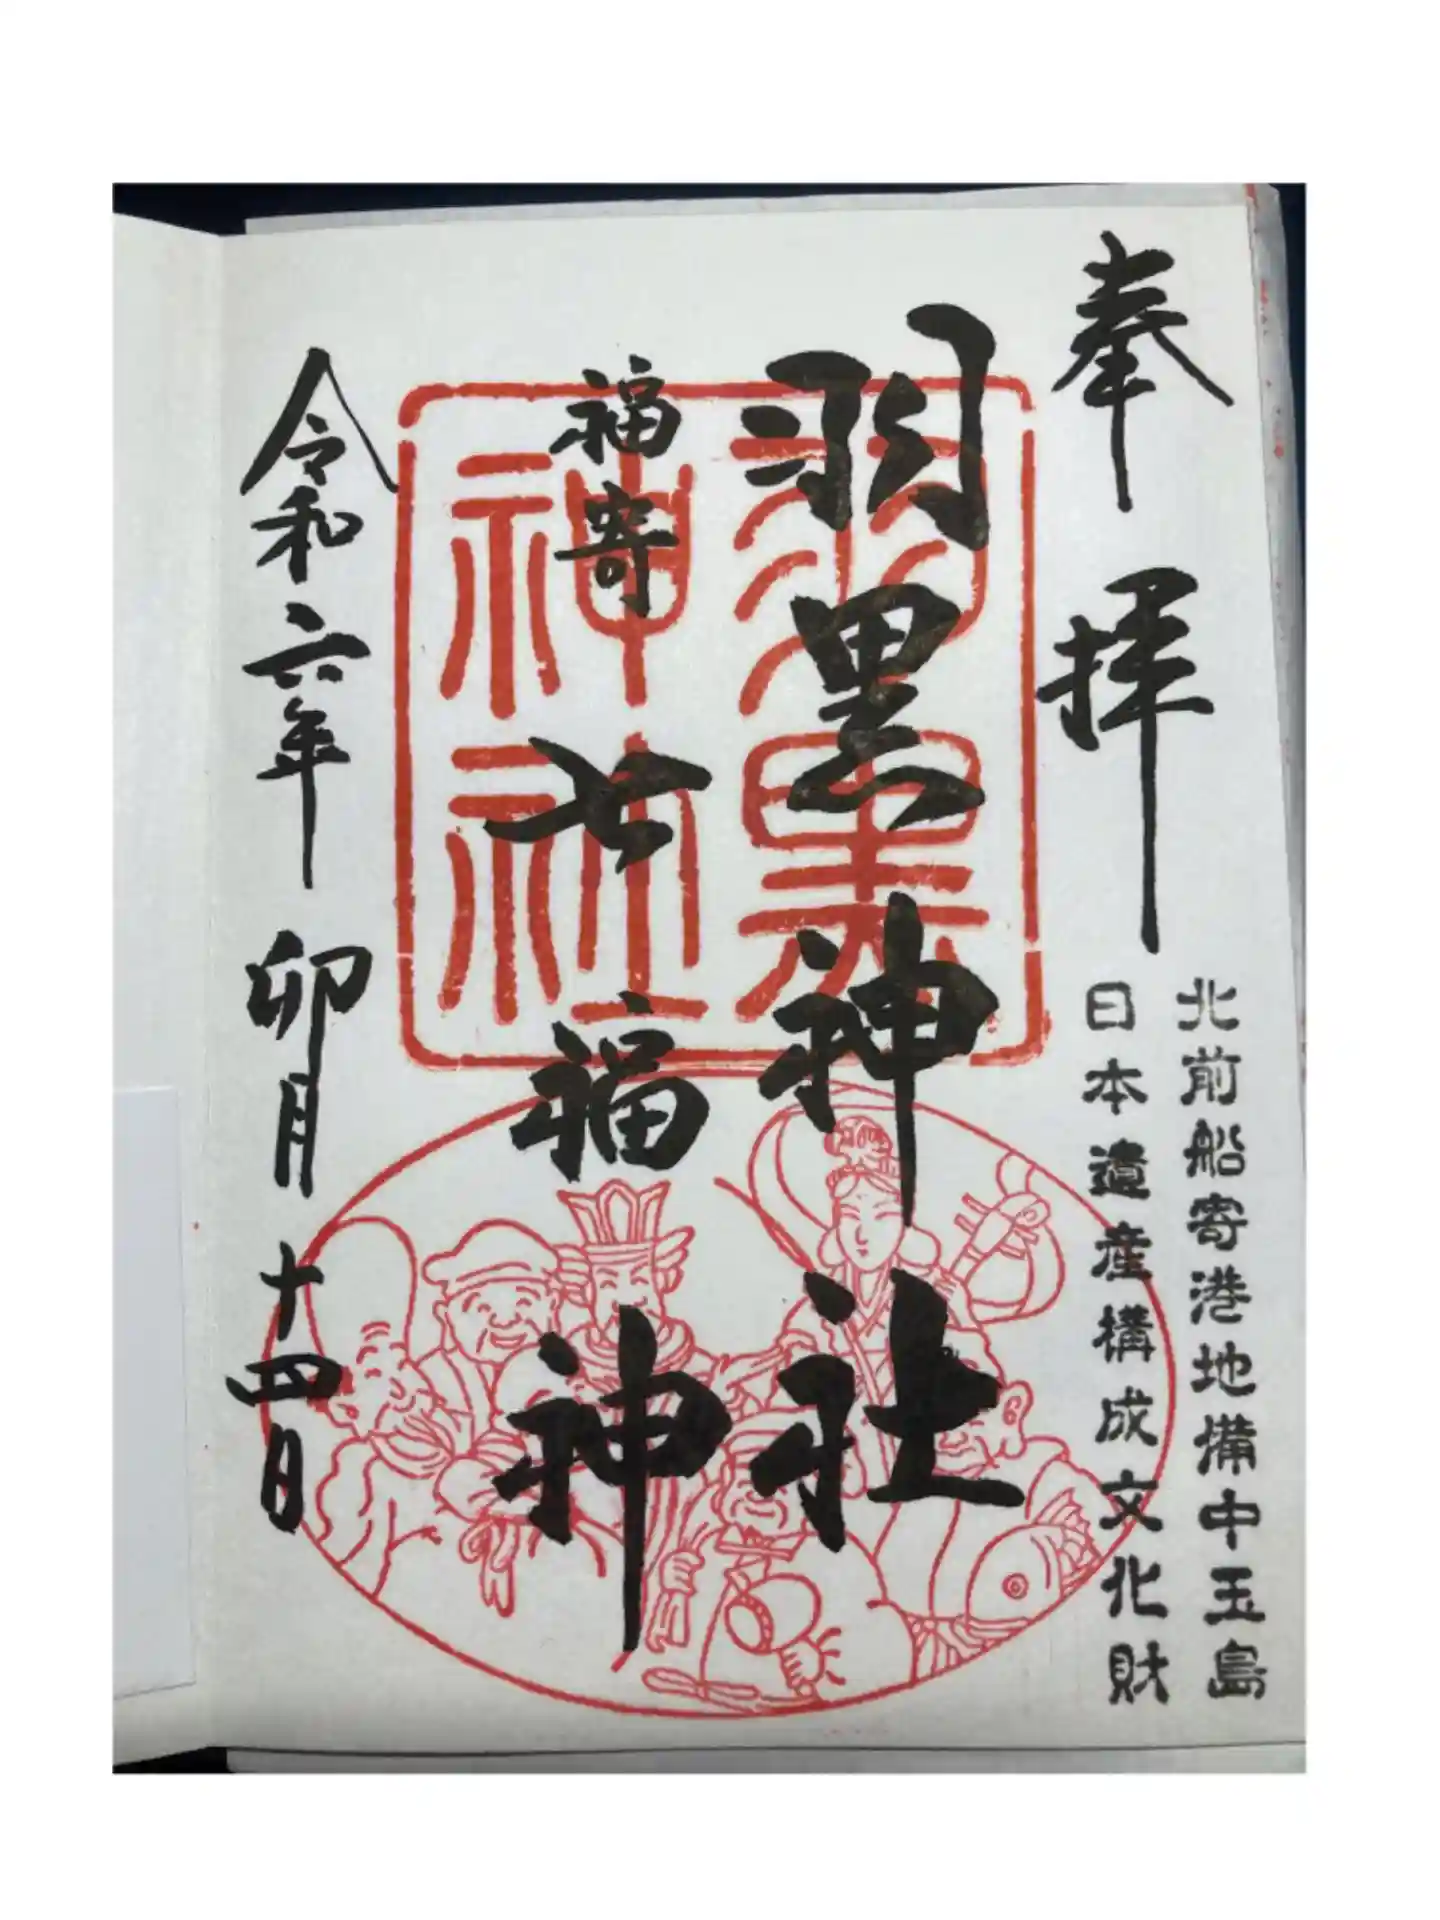 奉拝
北前船寄港地備中玉島
日本遺産構成文化財
羽黒神社
羽黒
神社
福寄
七福神
令和六年卯月十四日